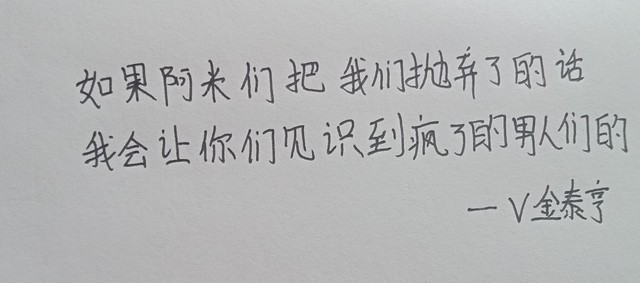 如果阿米们把我们抛弃了的话
我会让你们见识到疯了的男人们的
一V金泰亨